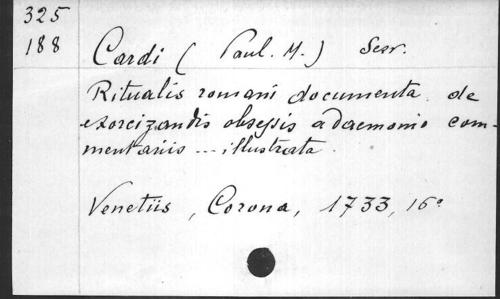 325
188
Cardi (Paul. M.) Serv.
Ritualis romani documenta de
exorcizandis obsessis a daemonio com-
mentariis ... illustrata.
Venetiis, Corona, 1733, 16°